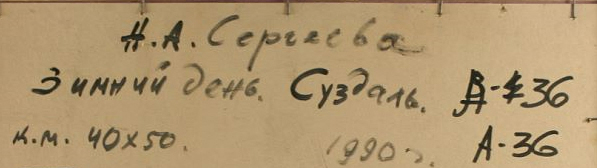 Н.А. Сергеева
Зимний день. Суздаль. 36
к.м. 40х50. 1990г. А-36